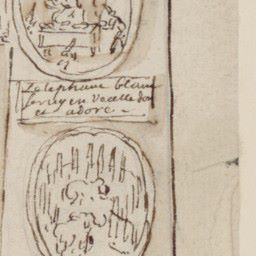 Lelephant blanc
servy en Vecelle dor
et adoré